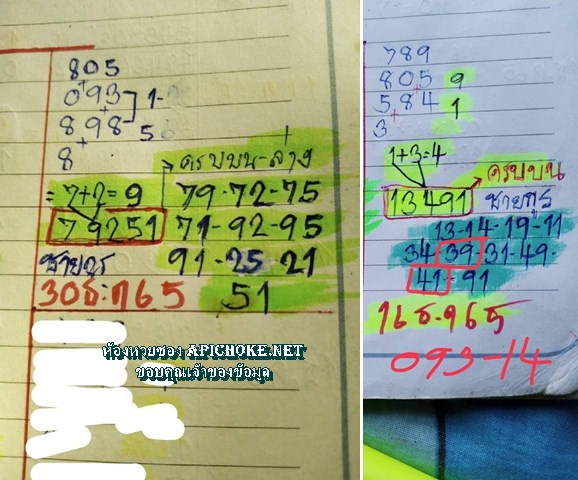 805
093 1-2
898 56
8
ครบบน-ล่าง
= 7+2=9 79-72-75
79251 71-92-95
ชายกูร 91-25-21
30ธ:ค65 51
ห้องหวยซอง APICHOKE.NET
ขอบคุณเจ้าของข้อมูล
789
805 9
584 1
3
1+3=4
ครบบน
13491 ชายกูร
13-14-19-11
34 39 31-49-
41-91
16ธ.ค65
093-14